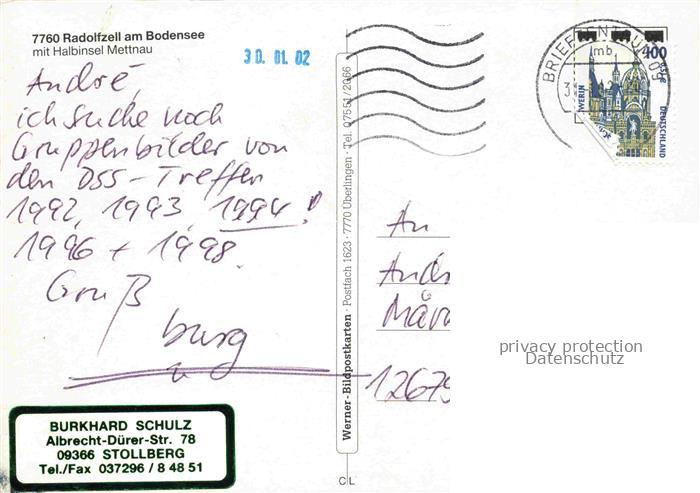 7760 Radolfzell am Bodensee
mit Halbinsel Mettnau
30. 01. 02
André,
ich suche noch
Gruppenbilder von
den DSS-Treffen
1992, 1993, 1994!
1996 + 1998.
Gruß
burg
BURKHARD SCHULZ
Albrecht-Dürer-Str. 78
09366 STOLLBERG
Tel./Fax 037296 / 8 48 51
Werner-Bildpostkarten · Postfach 1623 · 7770 Überlingen · Tel. 07551/2066
C L
BRIEFZENTRUM 09
mb
400
DEUTSCHLAND
An
And
Mär
12679
privacy protection
Datenschutz